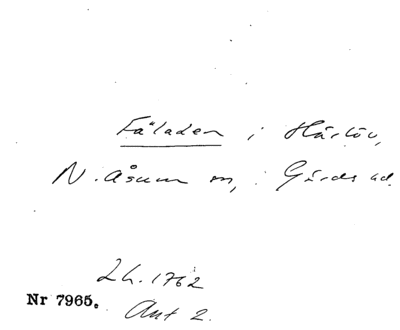 Fäladen i Härlöv,
N. Åsum m, i Gärds hd.
Lh. 1762
Nr 7965.
Akt 2.